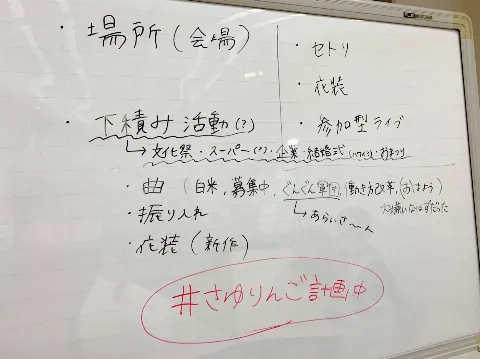 ・場所(会場)
・セトリ
・衣装
・参加型ライブ
・下積み活動(?)
↳文化祭・スーパー(?)・企業・結婚式
・曲(白米、募集中、ぐんぐん軍団、働き方改革、(おはよう)
大嫌いなはずだった
↳あらいさ〜ん
・振り入れ
・衣装(新作)
#さゆりんご計画中